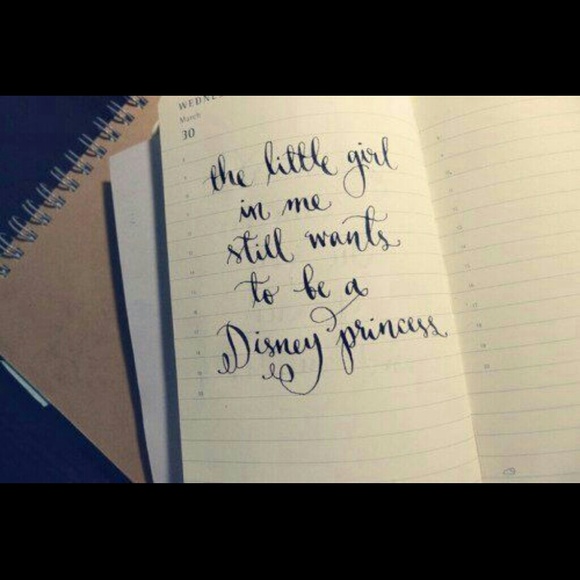 March
30
the little girl
in me
still wants
to be a
Disney princess